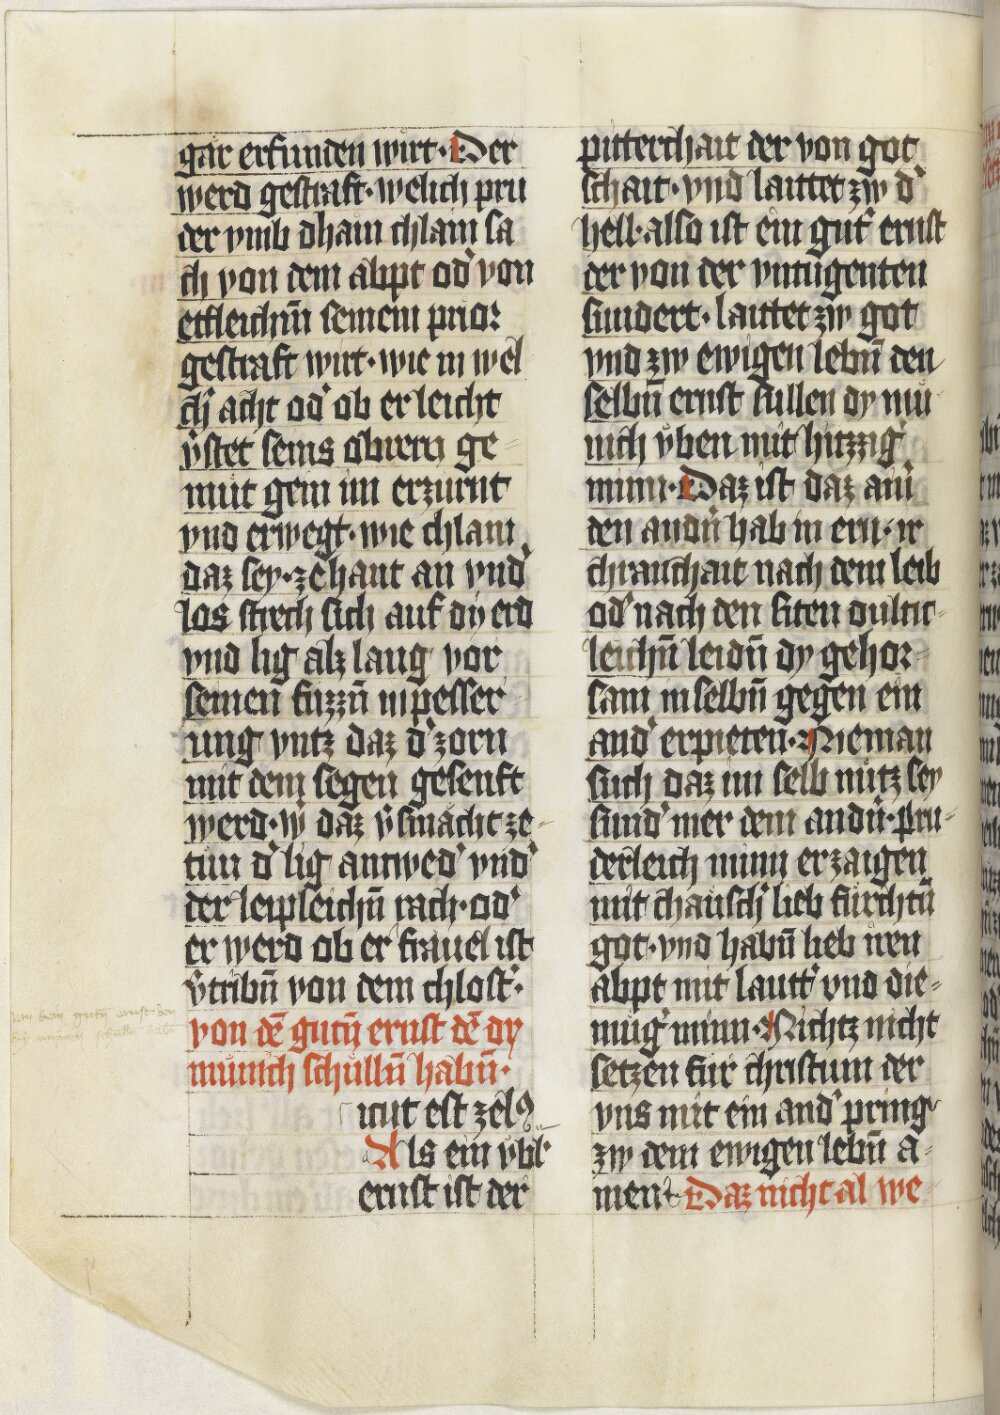 gar erfunden wirt· Der
werd gestraft· welich pru
der vmb dhain chlain sa
ch von dem abpt od̾ von
etleichn̄ seinem prior
gestraft wirt· wie in wel
ch̾ acht od̾ ob er leicht
v̾stet seins obrern ge-
müt gem im erzurnt
vnd erwegt· wie chlain
daz sey· zehant an vnd̾
los strech sich auf dy erd
vnd lig alz lang vor
seinen fuzzn̄ in pesser
ung vntz daz d̾ zorn
mit dem segen gesenft
werd· w̾ daz v̾smacht ze-
tun d̾ lig antwed̾ vnd̾
der leipleichn̄ rach· od̾
er werd ob er frauel ist
v̾tribn̄ von dem chlost̾·
von dē gutn̄ ernst dē dy
münich schulln̄ habn̄·
icut est zelꝰ
Als ein vbl̾
ernst ist der
pitterchait der von got
schait· vnd laittet zw d̾
hell· also ist ein gut̾ ernst
der von der vntugenten
sundert· laitet zw got
vnd zw ewigen lebn̄ den
selbn̄ ernst sullen dy mu-
nich v̈ben mit hitzzig̾
minn· Daz ist daz ain̾
den andn̾ hab in ern· ir
chranchait nach dem leib
od̾ nach den siten dultic-
leichn̄ leidn̄ dy gehor-
sam in selbn̄ gegen ein
and̾ erpieten· Nieman
such daz im selb nütz sey
sund̾ mer dem andn̾· pru-
derleich minn erzaigen
mit chausch̾ lieb fürchtn̄
got· vnd habn̄ lieb iren
abpt mit lautt̾ vnd die-
mug̾ minn· Nichtz nicht
setzen für christum der
vns mit ein and̾ pring
zw dem ewigen lebn̄ a-
men· Daz nicht al we-